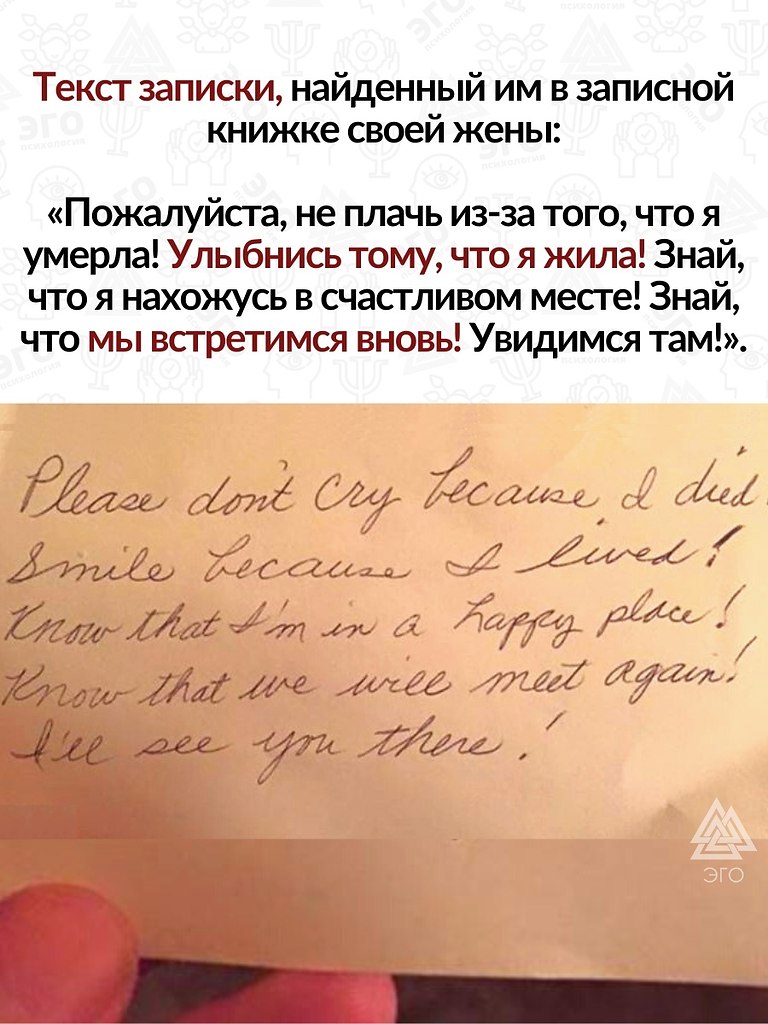 Текст записки, найденный им в записной
книжке своей жены:
«Пожалуйста, не плачь из-за того, что я
умерла! Улыбнись тому, что я жила! Знай,
что я нахожусь в счастливом месте! Знай,
что мы встретимся вновь! Увидимся там!».
Please don't cry because I died
Smile because I lived!
Know that I'm in a happy place!
Know that we will meet again!
I'll see you there!
ЭГО